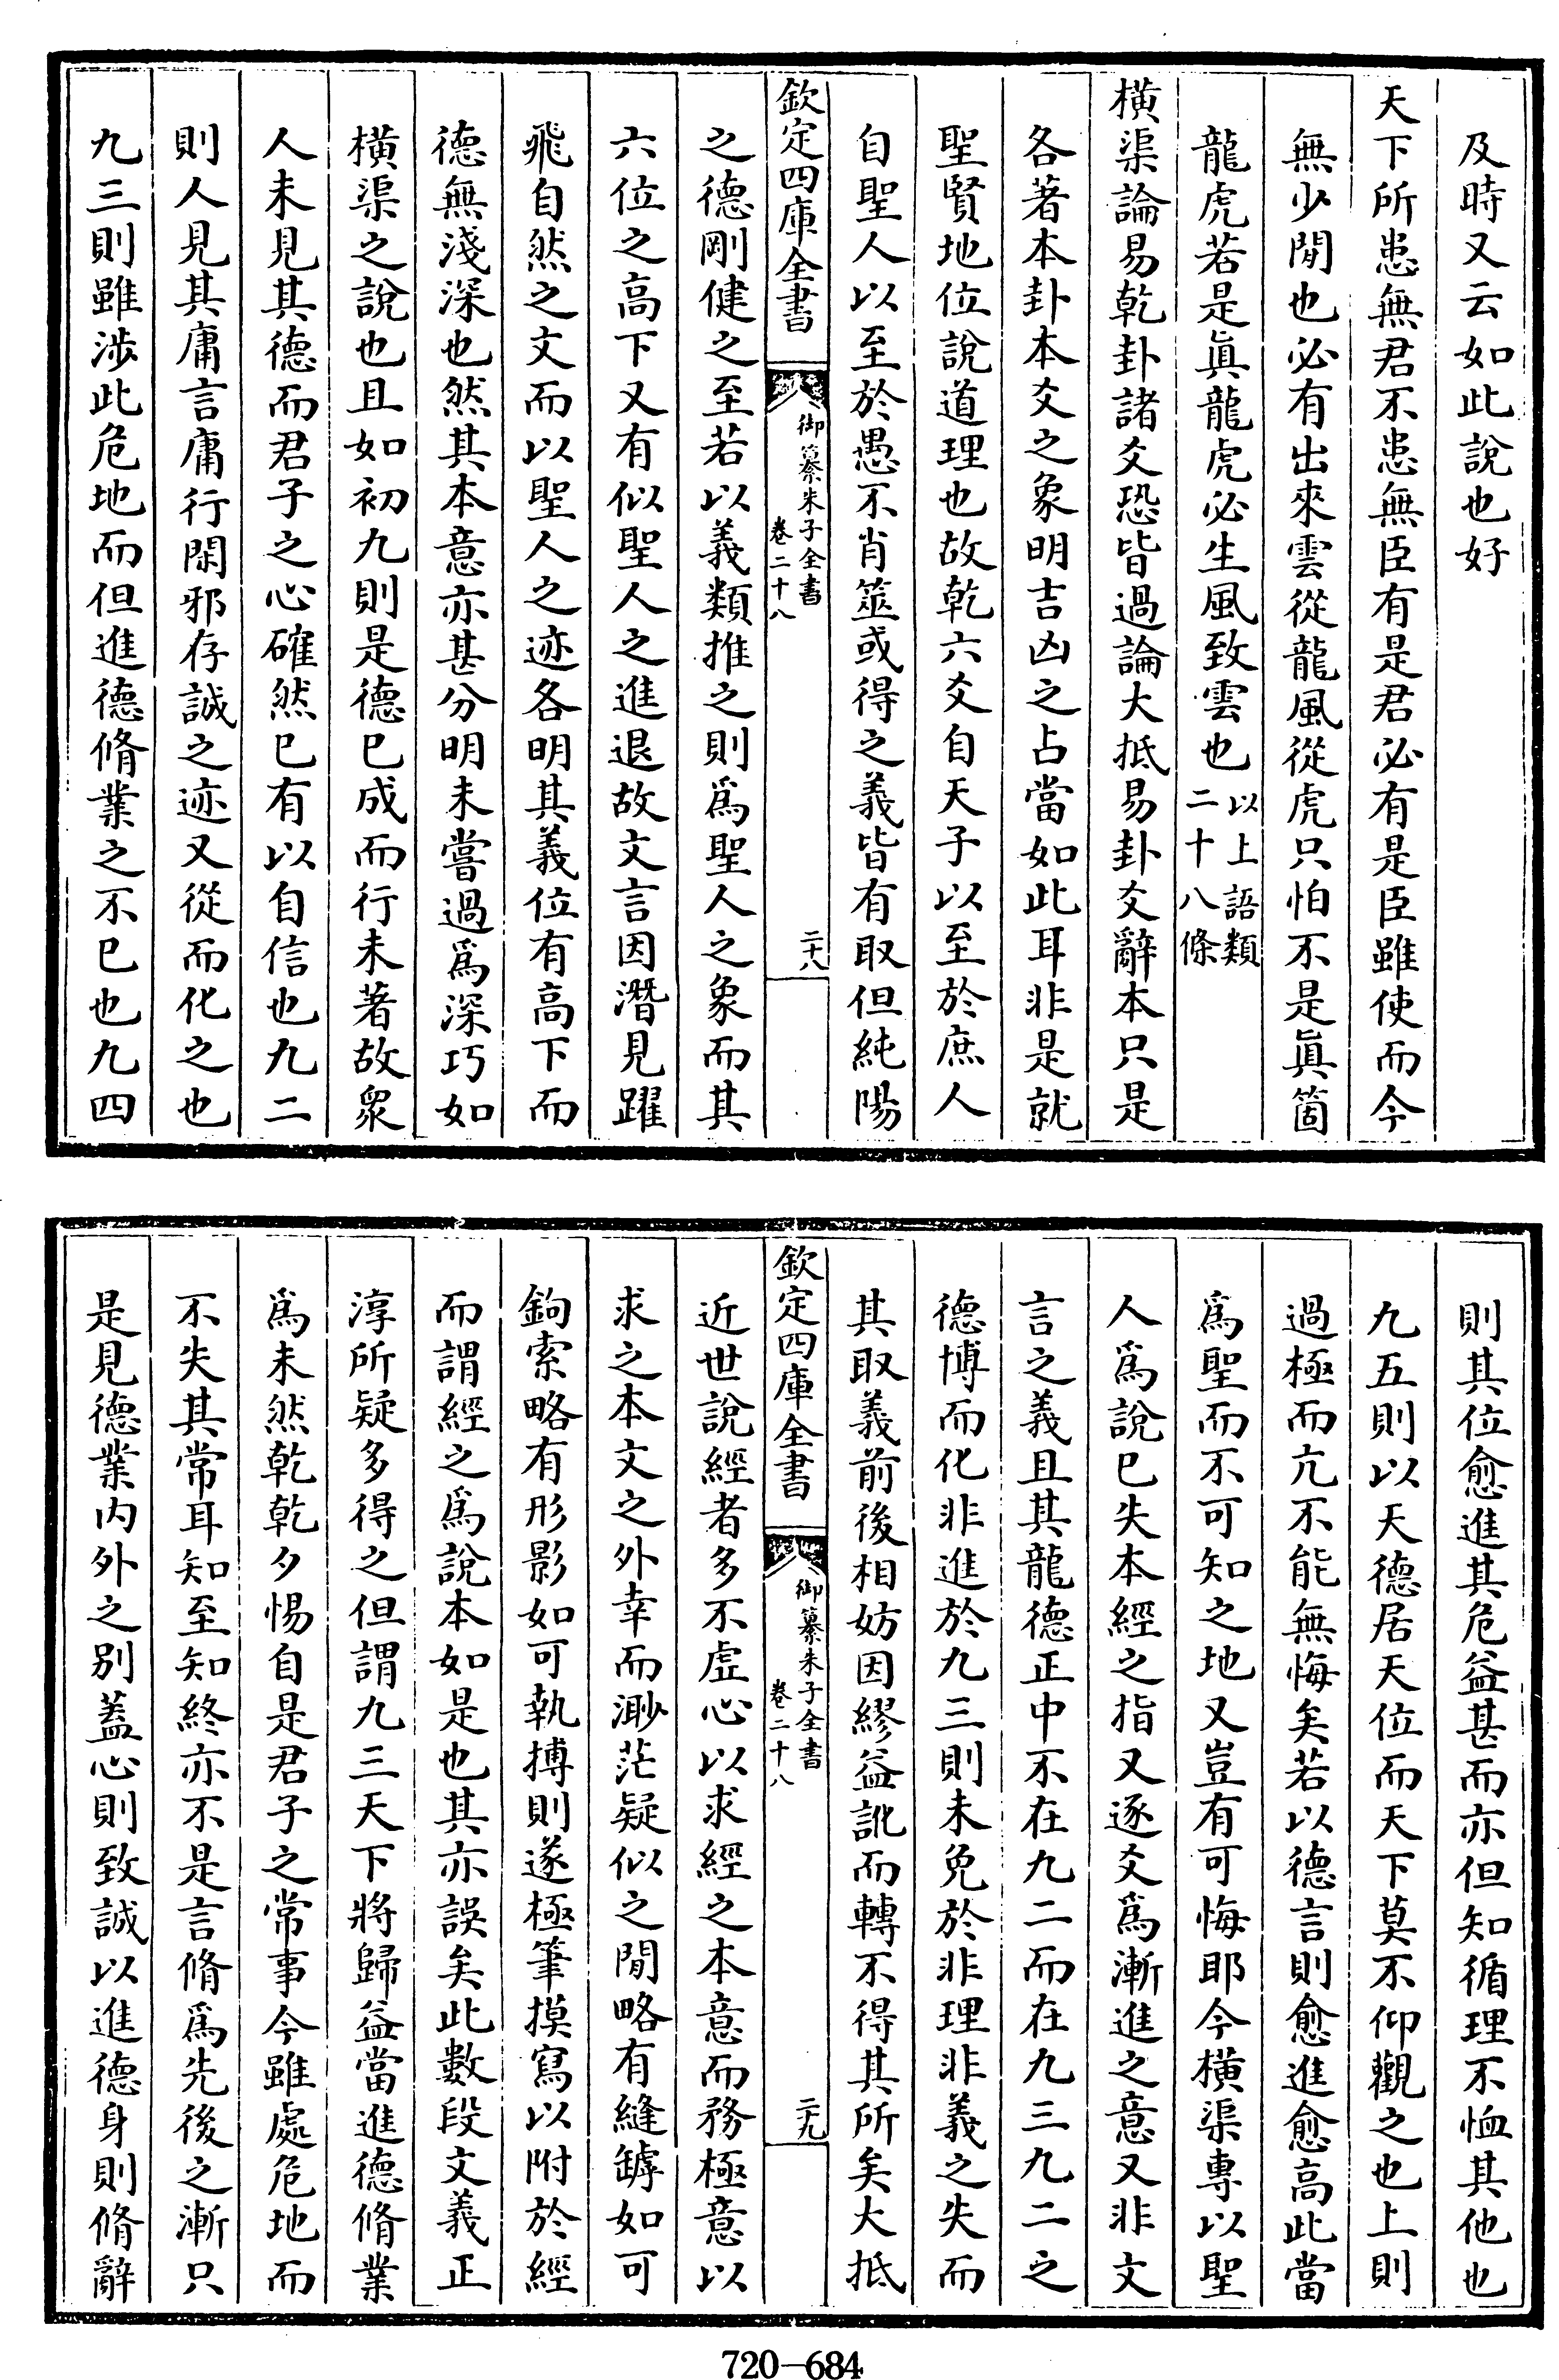 及時又云如此說也好
天下所患無君不患無臣有是君必有是臣雖使而今
無少閒也必有出來雲從龍風從虎只怕不是眞箇
龍虎若是眞龍虎必生風致雲也以上語類二十八條
橫渠論易乾卦諸爻恐皆過論大抵易卦爻辭本只是
各著本卦本爻之象明吉凶之占當如此耳非是就
聖賢地位說道理也故乾六爻自天子以至於庶人
自聖人以至於愚不肖筮或得之義皆有取但純陽
欽定四庫全書
御纂朱子全書
卷二十八
二十八
之德剛健之至若以義類推之則爲聖人之象而其
六位之高下又有似聖人之進退故文言因潛見躍
飛自然之文而以聖人之迹各明其義位有高下而
德無淺深也然其本意亦甚分明未嘗過爲深巧如
橫渠之說也且如初九則是德已成而行未著故衆
人未見其德而君子之心確然已有以自信也九二
則人見其庸言庸行閑邪存誠之迹又從而化之也
九三則雖涉此危地而但進德脩業之不已也九四
則其位愈進其危益甚而亦但知循理不恤其他也
九五則以天德居天位而天下莫不仰觀之也上則
過極而亢不能無悔矣若以德言則愈進愈高此當
爲聖而不可知之地又豈有可悔耶今橫渠專以聖
人爲說已失本經之指又逐爻爲漸進之意又非文
言之義且其龍德正中不在九二而在九三九二之
德博而化非進於九三則未免於非理非義之失而
其取義前後相妨因繆益訛而轉不得其所矣大抵
欽定四庫全書
御纂朱子全書
卷二十八
二十九
近世說經者多不虛心以求經之本意而務極意以
求之本文之外幸而渺茫疑似之閒略有縫罅如可
鉤索略有形影如可執搏則遂極筆摸寫以附於經
而謂經之爲說本如是也其亦誤矣此數段文義正
淳所疑多得之但謂九三天下將歸益當進德脩業
爲未然乾乾夕惕自是君子之常事今雖處危地而
不失其常耳知至知終亦不是言脩爲先後之漸只
是見德業內外之別蓋心則致誠以進德身則脩辭
720—684